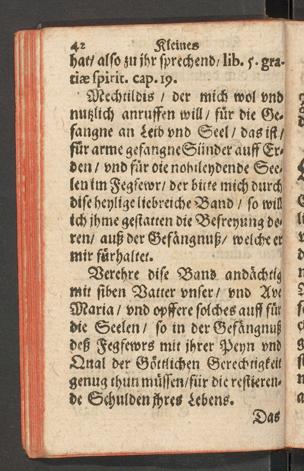 42 Kleines
hat/ also zu jhr sprechend/ lib. 5. gra-
tiæ spirit. cap. 19.
Mechtildis / der mich wol vnd
nutzlich anruffen will / für die Ge-
fangne an Leib vnd Seel / das ist /
für arme gefangne Sünder auff Er-
den / vnd für die nohtleydende See-
len im Fegfewr / der bitte mich durch
dise heylige liebreiche Band / so will
ich jhme gestatten die Befreyung de-
ren / auß der Gefängnuß / welche er
mir fürhaltet.
Verehre dise Band andächtig
mit siben Vatter vnser / vnd Ave
Maria / vnd opffere solches auff für
die Seelen / so in der Gefängnuß
deß Fegfewrs mit jhrer Peyn vnd
Qual der Göttlichen Gerechtigkeit
genug thun müssen / für die restieren-
de Schulden jhres Lebens.
Das